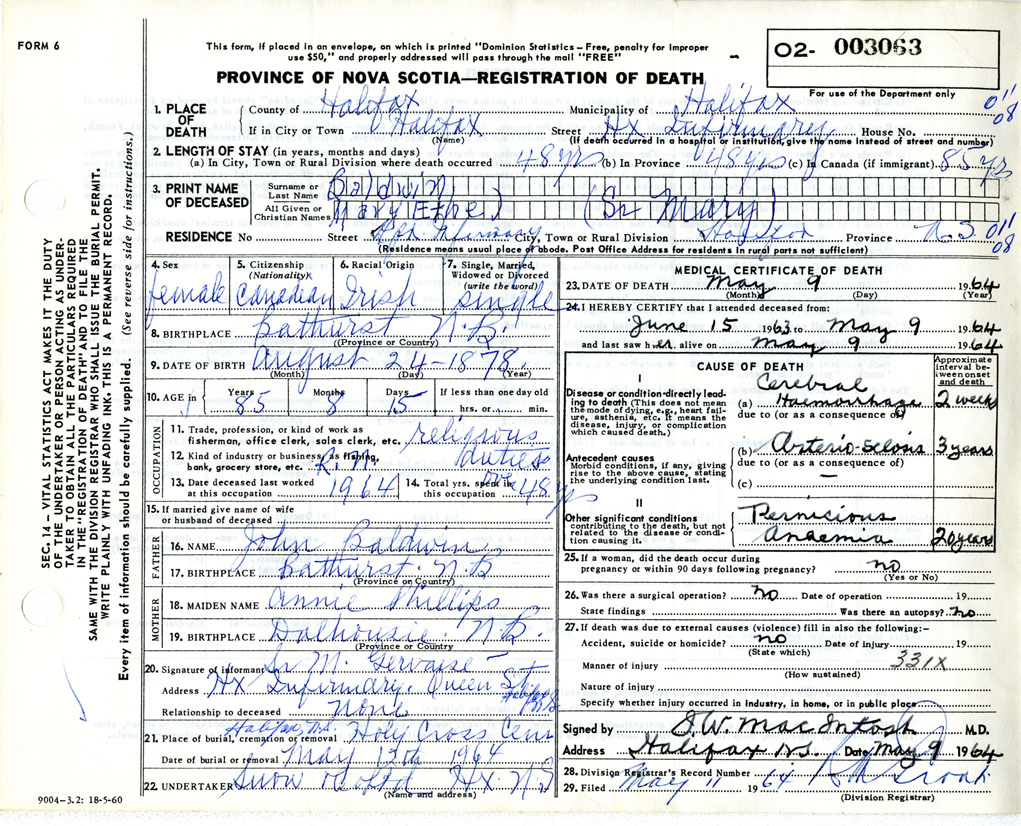 FORM 6
This form, if placed in an envelope, on which is printed "Dominion Statistics – Free, penalty for improper
use $50," and properly addressed will pass through the mail "FREE"
O2- 003063
For use of the Department only
PROVINCE OF NOVA SCOTIA—REGISTRATION OF DEATH
011
08
1. PLACE OF DEATH County of Halifax Municipality of Halifax
If in City or Town Halifax Street Hx Infirmary House No.
(Name) (If death occurred in a hospital or institution, give the name instead of street and number)
2. LENGTH OF STAY (in years, months and days)
(a) In City, Town or Rural Division where death occurred 48 yrs (b) In Province 48 yrs (c) In Canada (if immigrant) 85 yrs
3. PRINT NAME OF DECEASED Surname or Last Name Baldwin
All Given or Christian Names Mary Ethel (Sr Mary)
RESIDENCE No. Street City, Town or Rural Division Province N.S. 011
08
(Residence means usual place of abode. Post Office Address for residents in rural parts not sufficient)
4. Sex female
5. Citizenship (Nationality) Canadian
6. Racial Origin Irish
7. Single, Married, Widowed or Divorced (write the word) single
8. BIRTHPLACE Bathurst N.B.
(Province or Country)
9. DATE OF BIRTH August 24-1878
(Month) (Day) (Year)
10. AGE in Years 85 Months 8 Days 15 If less than one day old hrs. or min.
OCCUPATION
11. Trade, profession, or kind of work as fisherman, office clerk, sales clerk, etc. religious
12. Kind of industry or business, as fishing, bank, grocery store, etc. R.N. duties
13. Date deceased last worked at this occupation 1964 14. Total yrs. spent in this occupation over 48 yrs
15. If married give name of wife or husband of deceased
FATHER
16. NAME John Baldwin
17. BIRTHPLACE Bathurst N.B
(Province or Country)
MOTHER
18. MAIDEN NAME Annie Phillips
19. BIRTHPLACE Dalhousie N.B.
(Province or Country)
20. Signature of informant Sr M. Gervaise
Address Hx Infirmary. Queen St
Relationship to deceased none
21. Place of burial, cremation or removal Halifax, N.S. Holy Cross Cem
Date of burial or removal May 12th 1964
22. UNDERTAKER Snow & Co Ltd Hx. N.S
(Name and address)
9004-3.2: 18-5-60
MEDICAL CERTIFICATE OF DEATH
23. DATE OF DEATH May 9 1964
(Month) (Day) (Year)
24. I HEREBY CERTIFY that I attended deceased from:
June 15 1963 to May 9 1964
and last saw her alive on May 9 1964
CAUSE OF DEATH
Approximate interval between onset and death
I
Disease or condition directly leading to death (This does not mean the mode of dying, e.g., heart failure, asthenia, etc. It means the disease, injury, or complication which caused death.)
(a) Cerebral Haemorrhage 2 weeks
due to (or as a consequence of)
Antecedent causes
Morbid conditions, if any, giving rise to the above cause, stating the underlying condition last.
(b) Arterio-sclosis 3 years
due to (or as a consequence of)
(c)
II
Other significant conditions contributing to the death, but not related to the disease or condition causing it.
Pernicious Anaemia 20 years
25. If a woman, did the death occur during pregnancy or within 90 days following pregnancy? no
(Yes or No)
26. Was there a surgical operation? no Date of operation 19
State findings Was there an autopsy? no
27. If death was due to external causes (violence) fill in also the following:–
Accident, suicide or homicide? no Date of injury 19
(State which)
Manner of injury 331X
(How sustained)
Nature of injury
Specify whether injury occurred in industry, in home, or in public place
Signed by S.W. MacIntosh M.D.
Address Halifax N.S. Date May 9 1964
28. Division Registrar's Record Number
29. Filed May 11 1964
(Division Registrar)
SEC. 14 – VITAL STATISTICS ACT MAKES IT THE DUTY
OF THE UNDERTAKER OR PERSON ACTING AS UNDER-
TAKER TO OBTAIN ALL THE PARTICULARS REQUIRED
IN THE "REGISTRATION OF DEATH" AND TO FILE THE
SAME WITH THE DIVISION REGISTRAR WHO SHALL ISSUE THE BURIAL PERMIT.
WRITE PLAINLY WITH UNFADING INK. THIS IS A PERMANENT RECORD.
Every item of information should be carefully supplied. (See reverse side for instructions.)